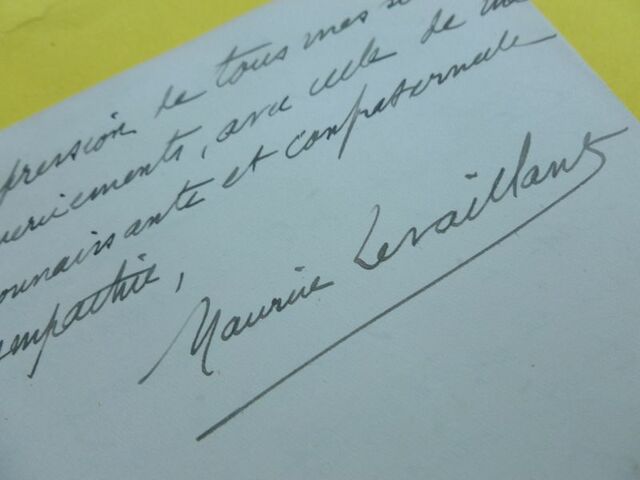 pression de tous mes
merciements, avec celle de m
connaissante et confraternelle
ympathie,
Maurice Levaillant